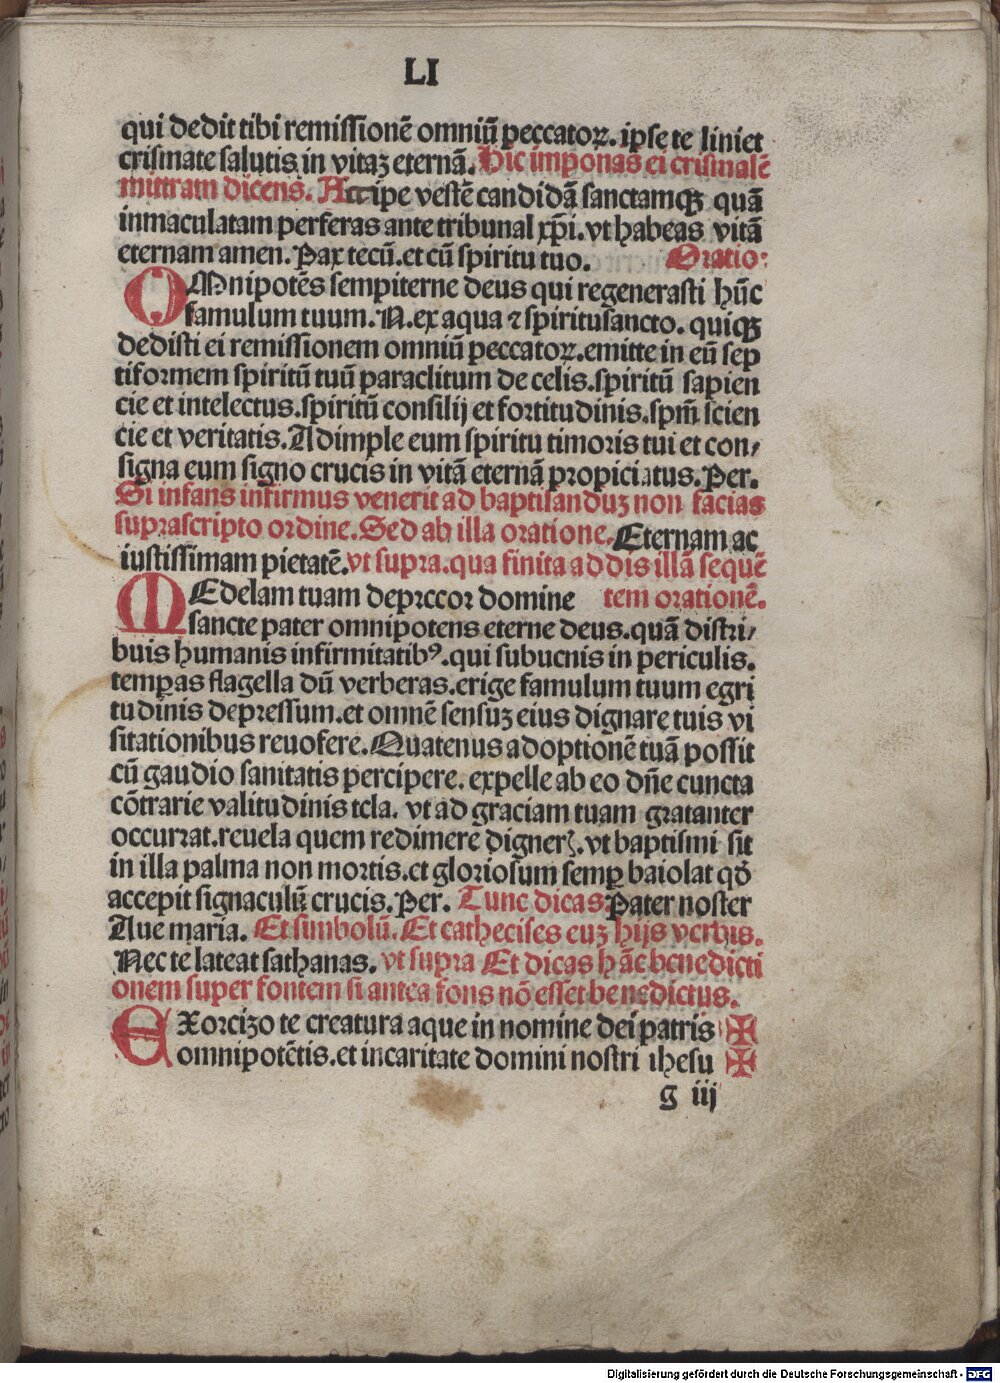 LI
qui dedit tibi remissionē omniū peccatoꝝ. ipse te liniet
crismate salutis in vitaꝫ eternā. Hic imponas ei crismalē
mittram dicens. Accipe vestē candidā sanctamqꝫ quā
inmaculatam perferas ante tribunal xp̄i. vt habeas vitā
eternam amen. Pax tecū. et cū spiritu tuo. Oratio:
OMnipotēs sempiterne deus qui regenerasti hūc
famulum tuum. N. ex aqua ⁊ spiritusancto. quiqꝫ
dedisti ei remissionem omniū peccatoꝝ. emitte in eū sep
tiformem spiritū tuū paraclitum de celis. spiritū sapien
cie et intelectus. spiritū consilij et fortitudinis. spm̄ scien
cie et veritatis. Adimple eum spiritu timoris tui et con⸗
signa eum signo crucis in vitā eternā propiciatus. Per.
Si infans infirmus venerit ad baptisanduꝫ non facias
suprascripto ordine. Sed ab illa oratione. Eternam ac
iustissimam pietatē. vt supra. qua finita addis illā sequē
MEdelam tuam deprccor domine tem orationē.
sancte pater omnipotens eterne deus. quā distri⸗
buis humanis infirmitatibꝰ. qui subucnis in periculis.
temꝑas flagella dū verberas. erige famulum tuum egri
tudinis depressum. et omnē sensuꝫ eius dignare tuis vi
sitationibus reuofere. Quatenus adoptionē tuā possit
cū gaudio sanitatis percipere. expelle ab eo dn̄e cuncta
cōtrarie valitudinis tcla. vt ad graciam tuam gratanter
occurrat. reuela quem redimere digneꝛ. vt baptismi sit
in illa palma non mortis. et gloriosum semꝑ baiolat qđ
accepit signaculū crucis. Per. Tunc dicas Pater noster
Aue maria. Et simbolū. Et cathecises euꝫ hijs verbis.
Nec te lateat sathanas. vt supra Et dicas hāc benedicti
onem super fontem si antea fons nō esset benedictus.
EXorcizo te creatura aque in nomine dei patris ✠
omnipotētis. et in caritate domini nostri ihesu ✠
g iij
Digitalisierung gefördert durch die Deutsche Forschungsgemeinschaft - DFG